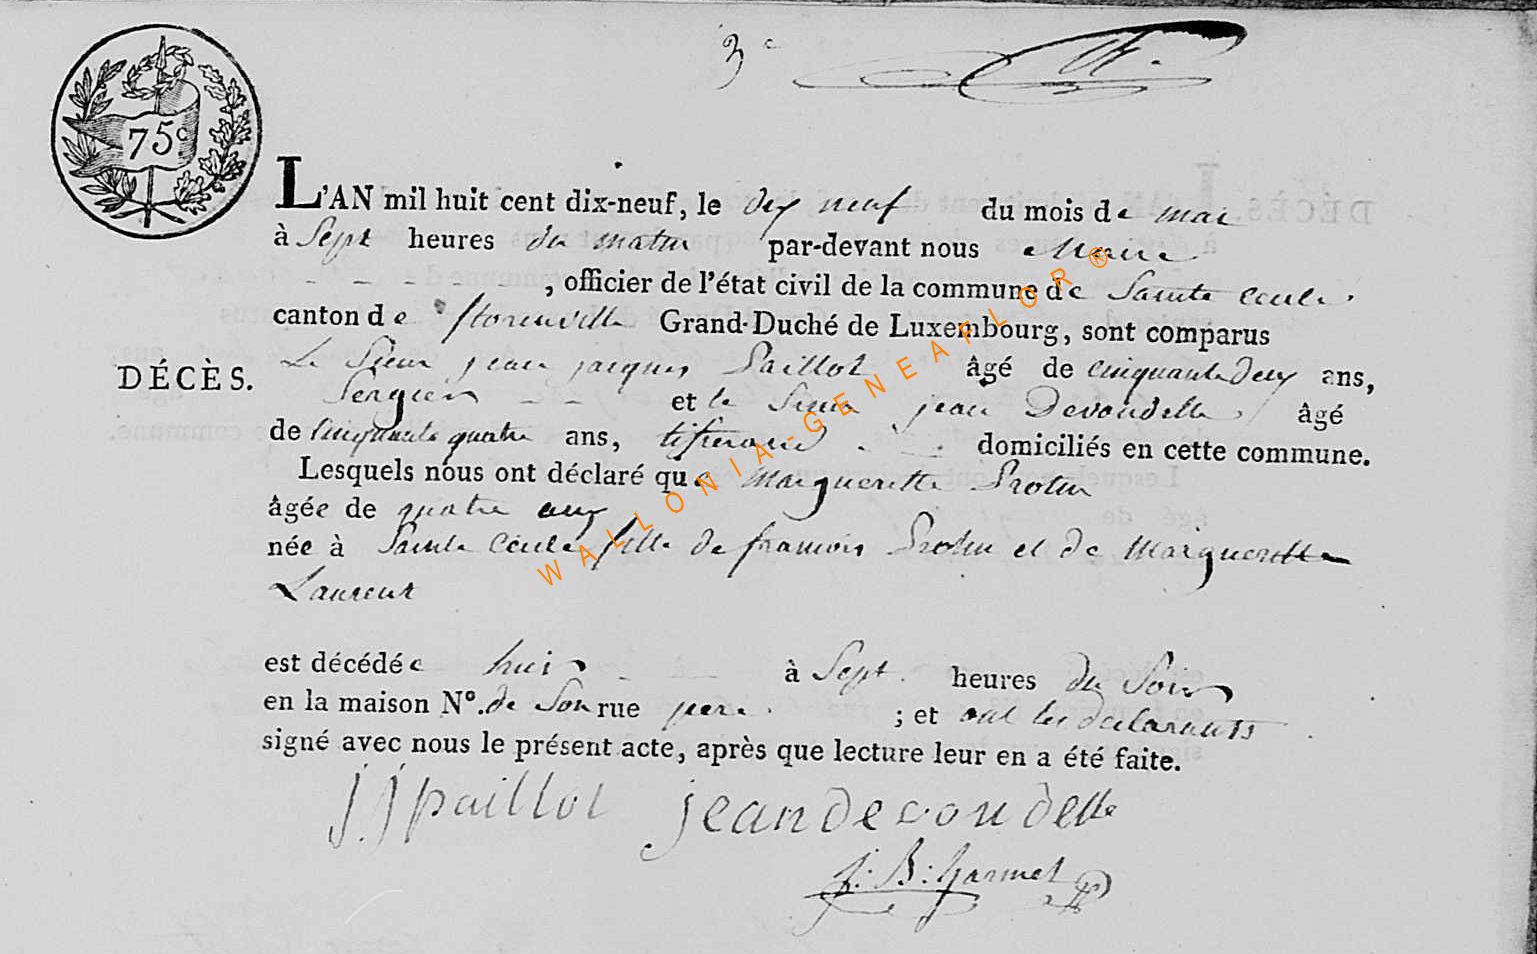 3e
75c
L'AN mil huit cent dix-neuf, le dix neuf du mois de mai
à Sept heures du matin par-devant nous Maire
, officier de l'état civil de la commune de Sainte Cecile
canton de florenville Grand-Duché de Luxembourg, sont comparus
DÉCÈS.
Le Sieur jean jacques Paillot âgé de cinquante deux ans,
Sergier et le Sieur jean Devoudelle, âgé
de cinquante quatre ans, tisserand domiciliés en cette commune.
Lesquels nous ont déclaré que Marguerette Protin
âgée de quatre ans
née à Sainte Cecile fille de francois Protin et de Marguerette
Laurent
est décédée hier à Sept heures du Soir
en la maison N°. de Son rue pere ; et ont les declarants
signé avec nous le présent acte, après que lecture leur en a été faite.
j j paillot jean devoudelle
j: B: Harmel
WALLONIA-GENEAFLOR®